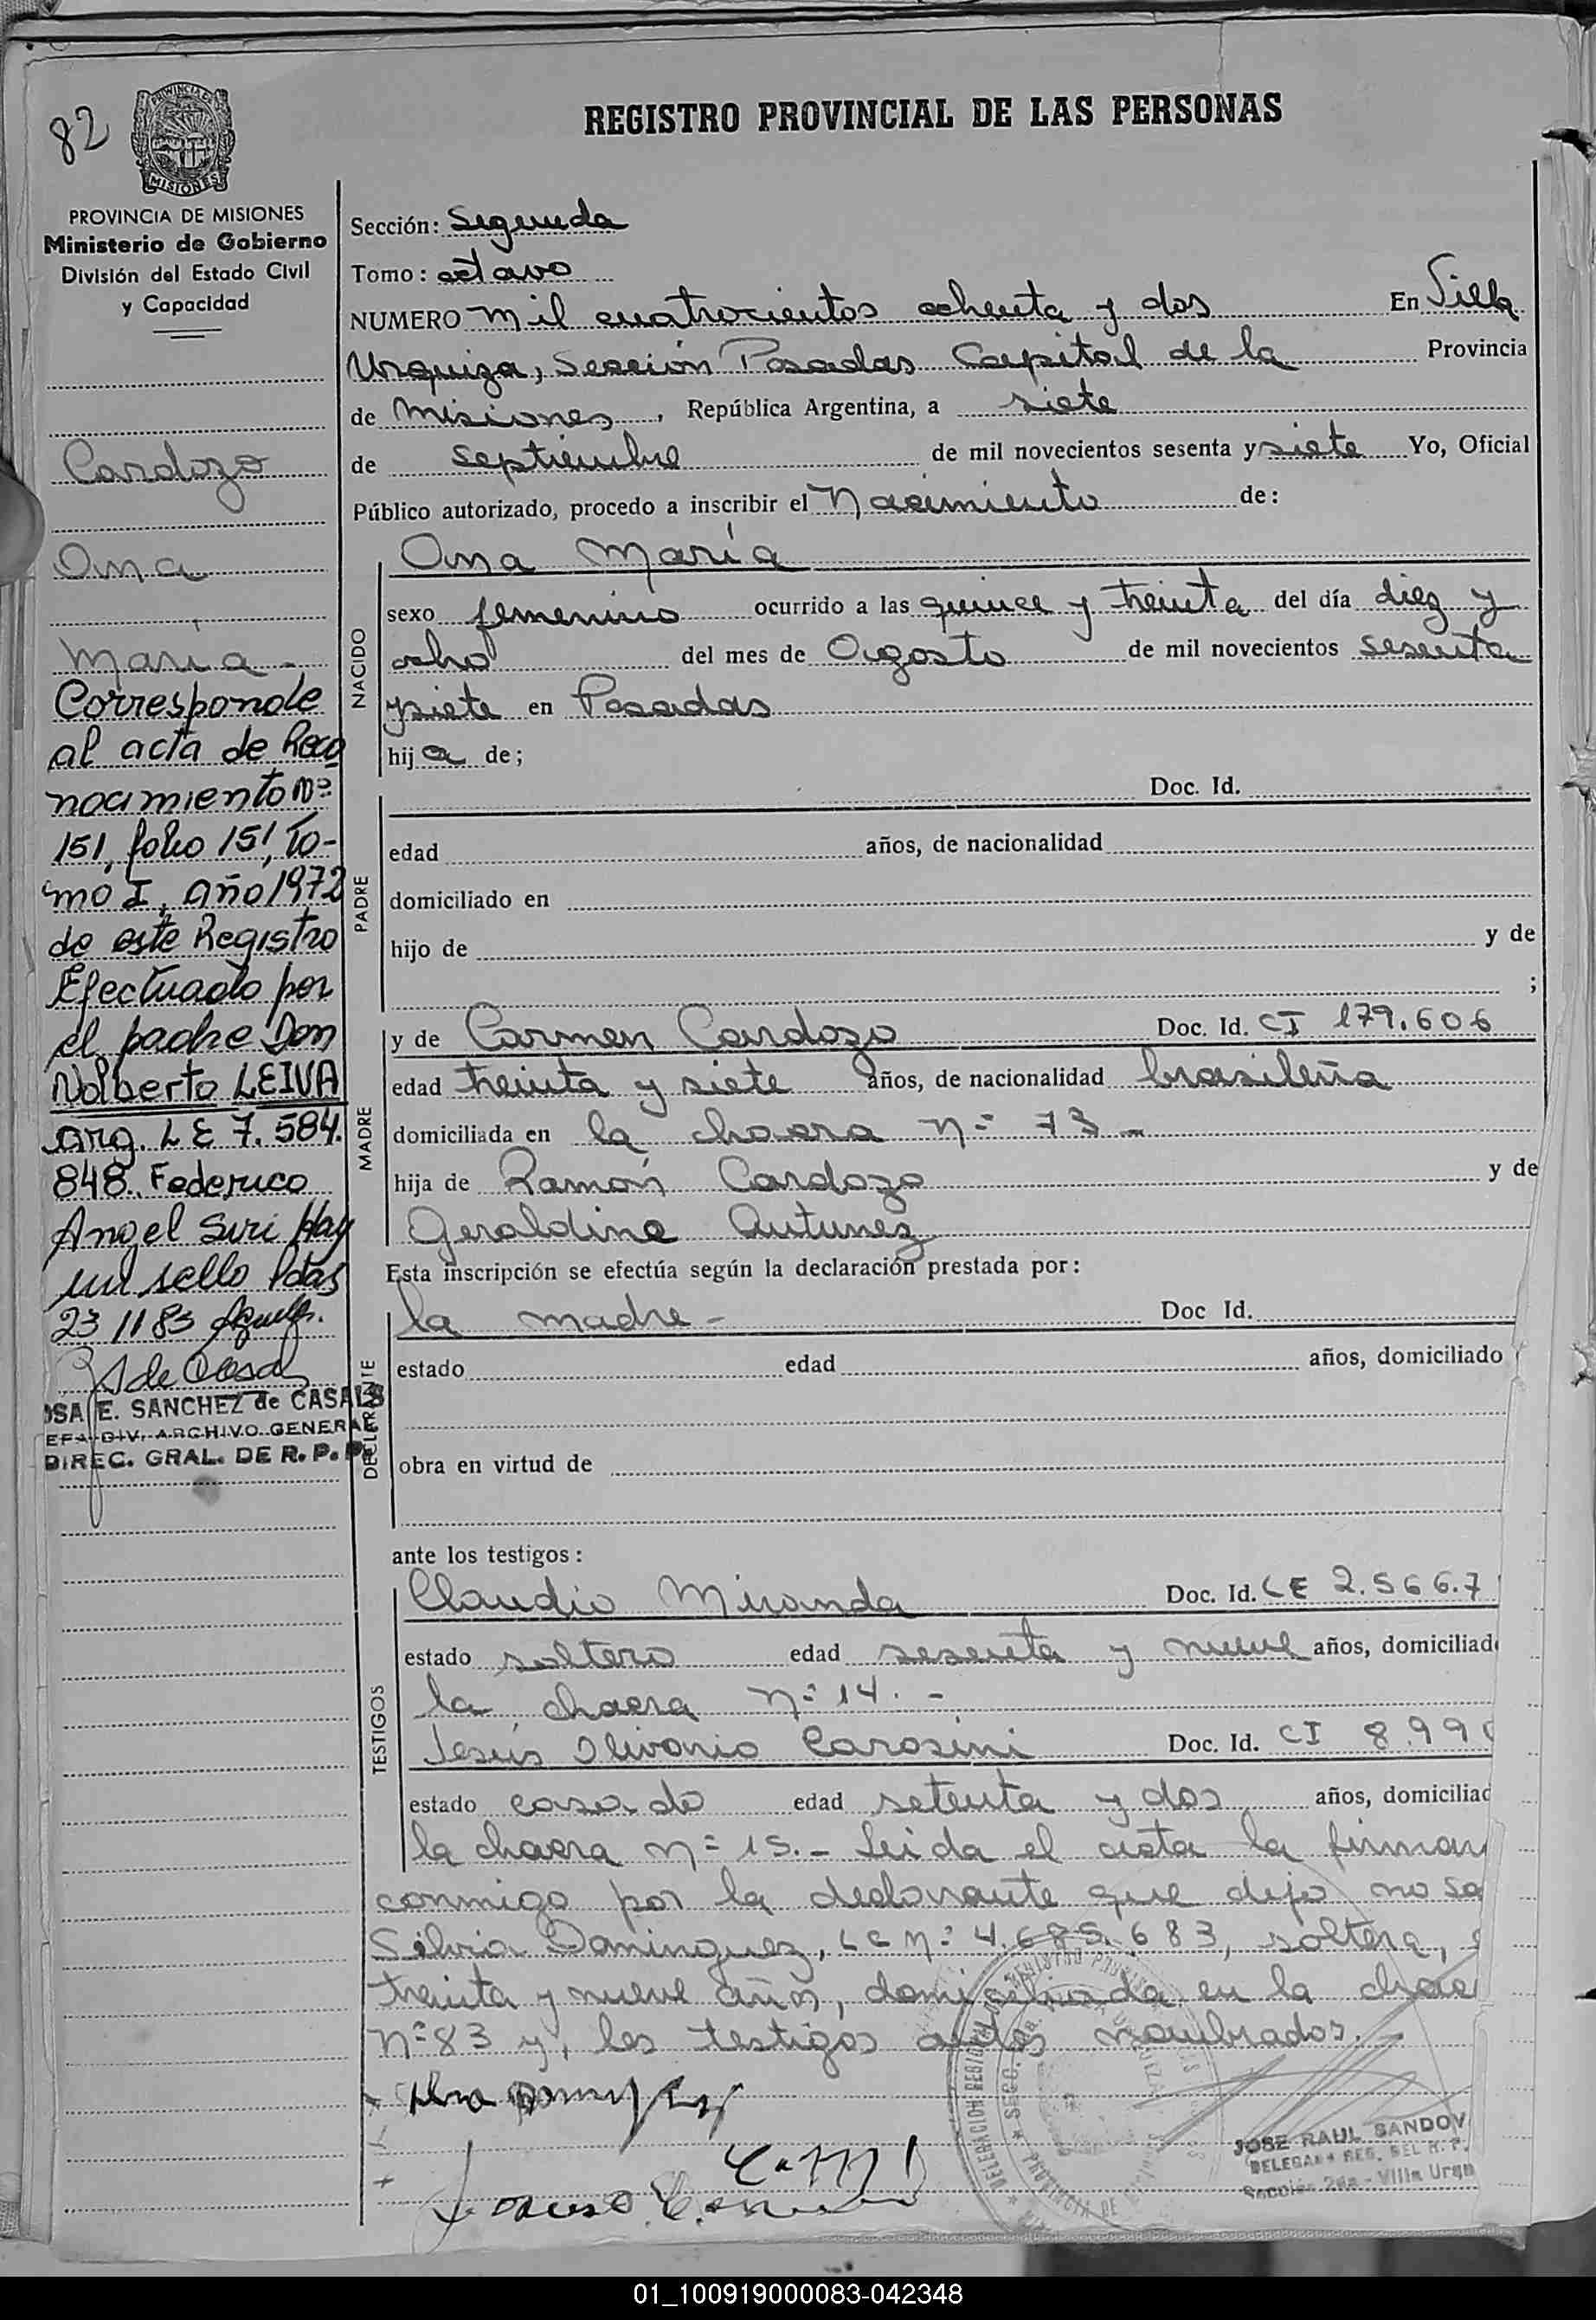 82
PROVINCIA
MISIONES
PROVINCIA DE MISIONES
Ministerio de Gobierno
División del Estado Civil
y Capacidad
Cardozo
Ana
María -
Corresponde
al acta de Reco
nocimiento Nº
151, folio 151, To-
mo I, año 1972
de este Registro
Efectuado por
el padre Don
Nolberto LEIVA
arg. L E 7.584.
848. Federico
Angel Siri Hay
un sello Pdas
23 11 83
S de Casal
OSA E. SANCHEZ de CASALS
EFA DIV. ARCHIVO GENERAL
DIREC. GRAL. DE R. P. P.
REGISTRO PROVINCIAL DE LAS PERSONAS
Sección: Segunda
Tomo: octavo
NUMERO mil cuatrocientos ochenta y dos En Villa
Urquiza, Sección Posadas Capital de la Provincia
de Misiones, República Argentina, a siete
de septiembre de mil novecientos sesenta y siete Yo, Oficial
Público autorizado, procedo a inscribir el Nacimiento de:
NACIDO
Ana María
sexo femenino ocurrido a las quince y treinta del día diez y
ocho del mes de Agosto de mil novecientos sesenta
y siete en Posadas
hija de;
PADRE
Doc. Id.
edad años, de nacionalidad
domiciliado en
hijo de y de
;
MADRE
y de Carmen Cardozo Doc. Id. CI 179.606
edad treinta y siete años, de nacionalidad brasileña
domiciliada en la chacra nº 73 -
hija de Ramón Cardozo y de
Geraldina Antunez
Esta inscripción se efectúa según la declaración prestada por:
DECLARANTE
la madre - Doc Id.
estado edad años, domiciliado
obra en virtud de
ante los testigos:
TESTIGOS
Claudio Miranda Doc. Id. LE 2.566.7
estado soltero edad sesenta y nueve años, domiciliad
la chacra nº 14. -
Jesús Olivonio Carosini Doc. Id. CI 8.99
estado casado edad setenta y dos años, domiciliad
la chacra nº 15. - Leida el acta la firman
conmigo por la declarante que dijo no sa
Silvia Dominguez, LC nº 4.685.683, soltera,
treinta y nueve años, domiciliada en la chac
nº 83 y, los testigos antes nombrados.
JOSE RAUL SANDOV
DELEGADO REG. DEL R. P.
Sección 2da - Villa Urqu
01_100919000083-042348